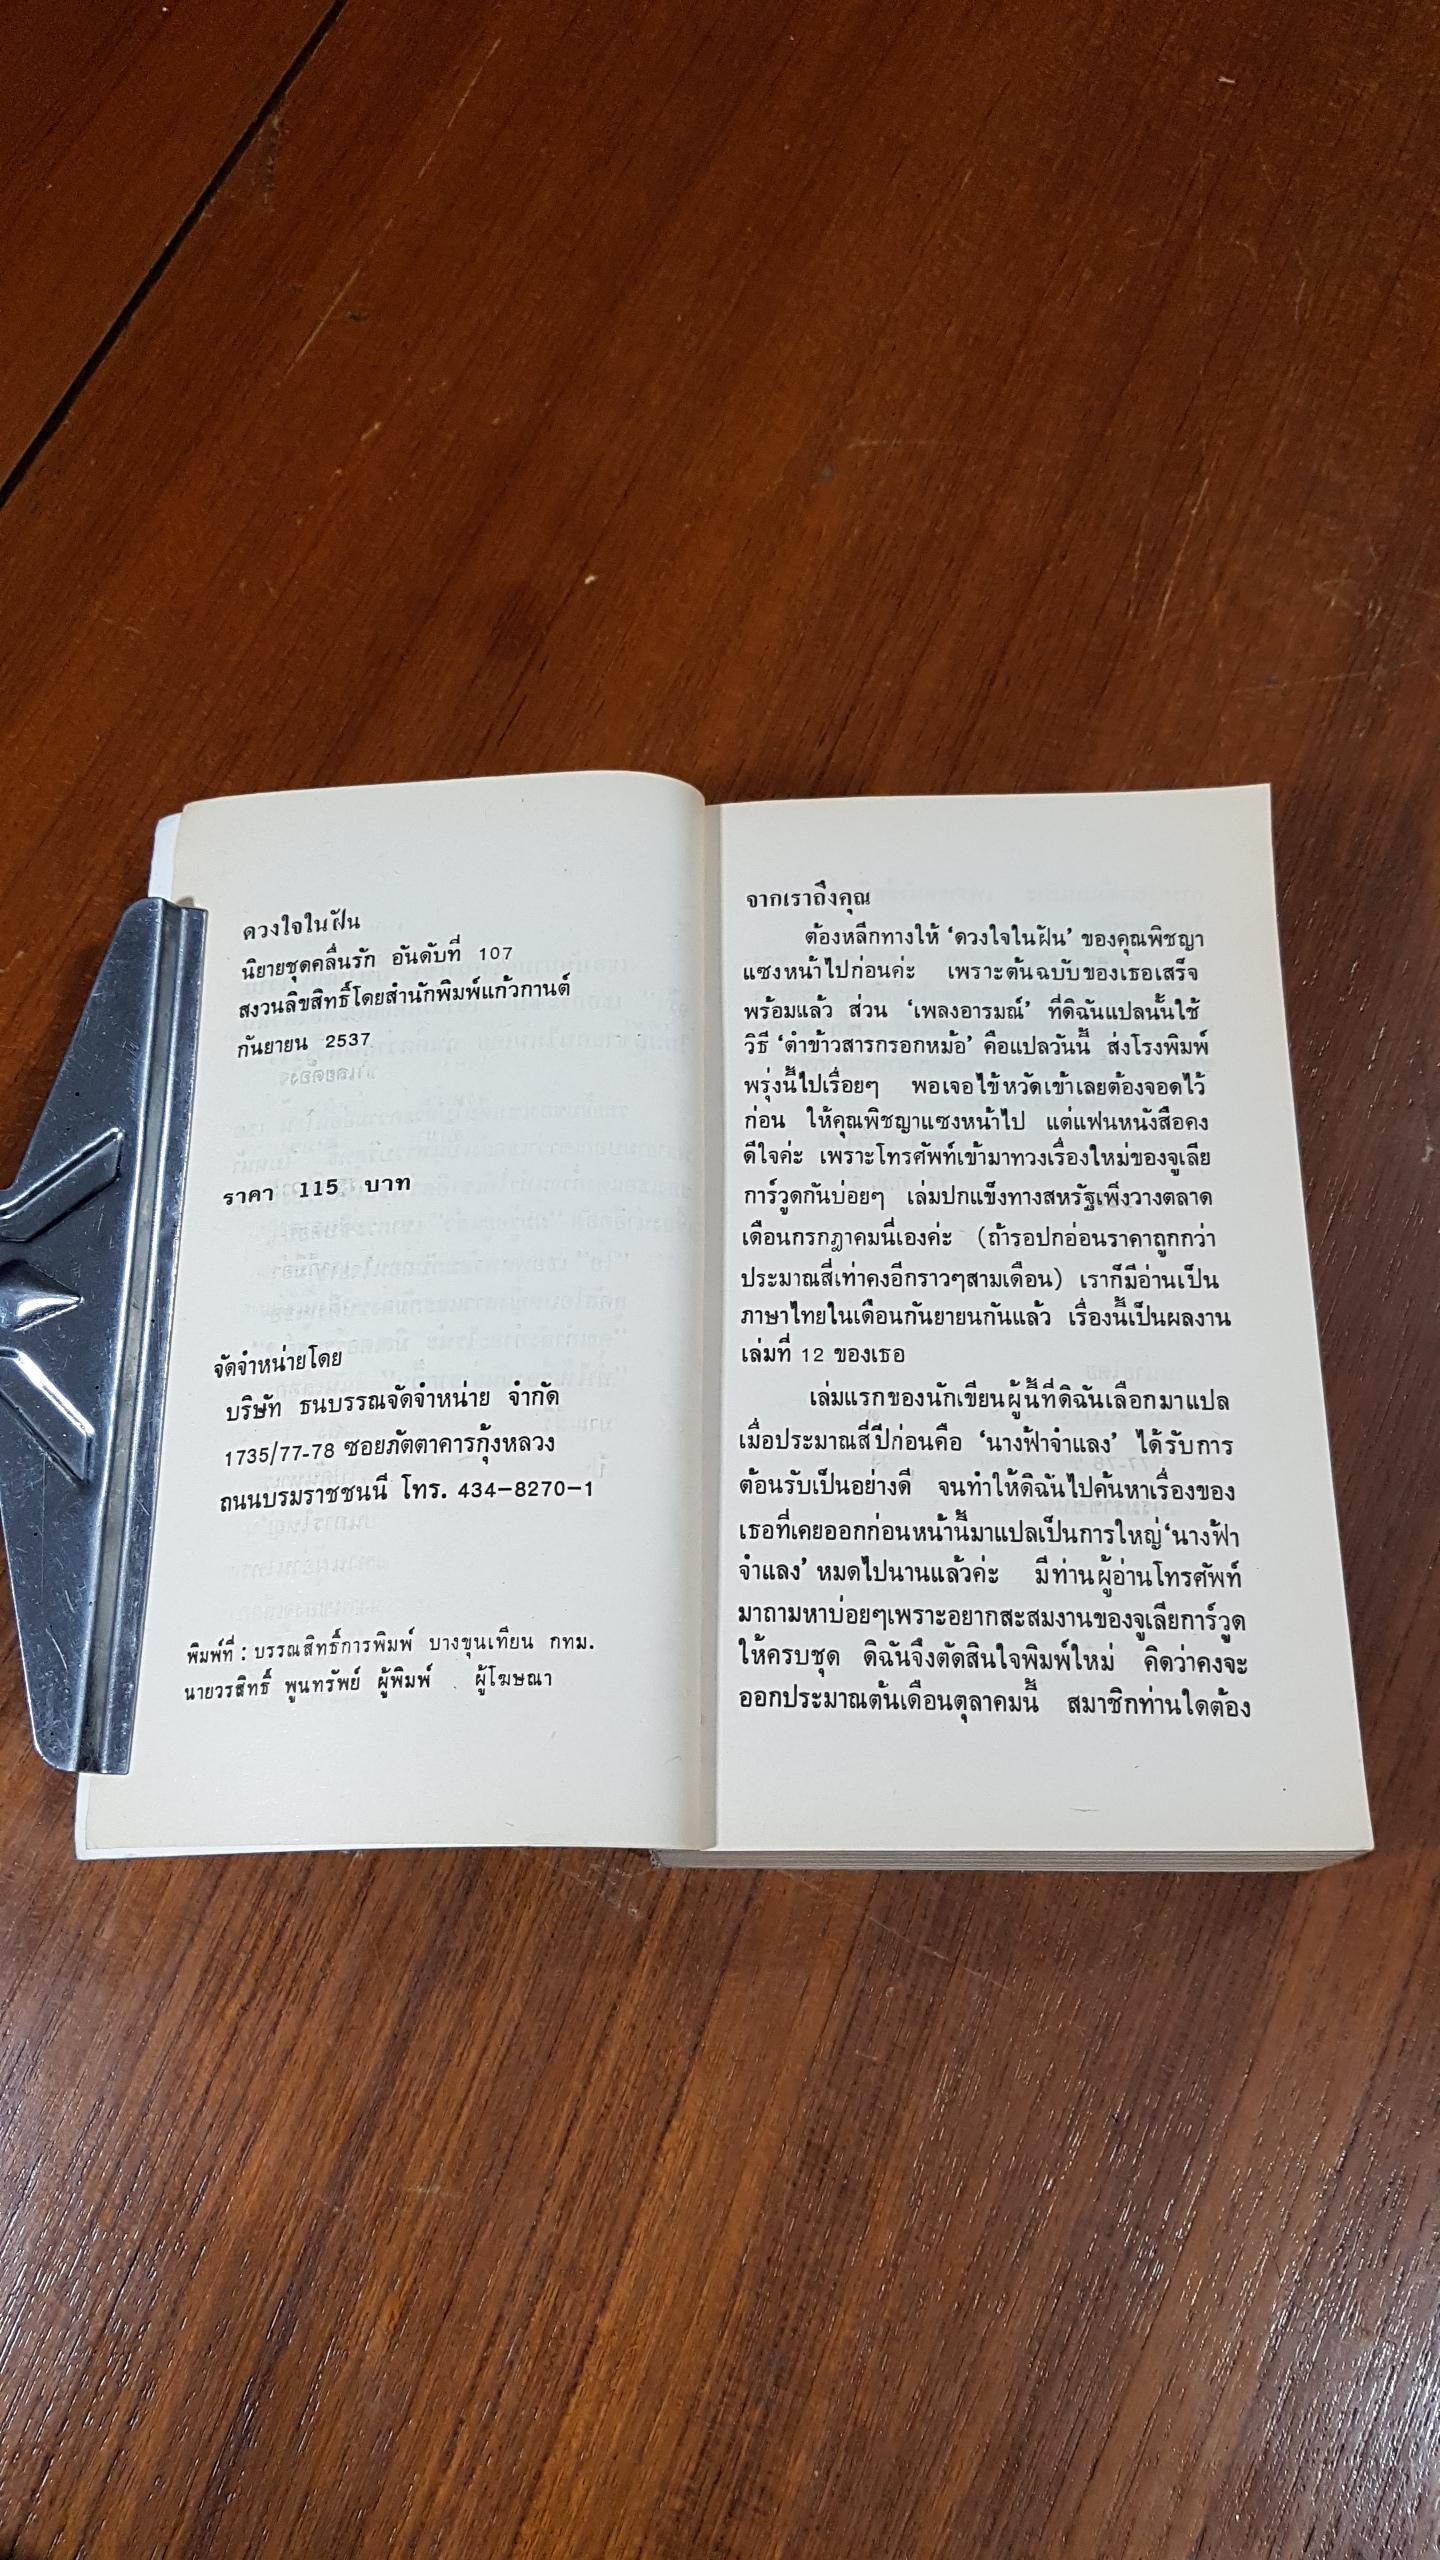 ดวงใจในฝัน
นิยายชุดคลื่นรัก อันดับที่ 107
สงวนลิขสิทธิ์โดยสำนักพิมพ์แก้วกานต์
กันยายน 2537
ราคา 115 บาท
จัดจำหน่ายโดย
บริษัท ธนบรรณจัดจำหน่าย จำกัด
1735/77-78 ซอยภัตตาคารกุ้งหลวง
ถนนบรมราชชนนี โทร. 434-8270-1
พิมพ์ที่ : บรรณสิทธิ์การพิมพ์ บางขุนเทียน กทม.
นายวรสิทธิ์ พูนทรัพย์ ผู้พิมพ์ ผู้โฆษณา
จากเราถึงคุณ
ต้องหลีกทางให้ 'ดวงใจในฝัน' ของคุณพิชญา
แซงหน้าไปก่อนค่ะ เพราะต้นฉบับของเธอเสร็จ
พร้อมแล้ว ส่วน 'เพลงอารมณ์' ที่ดิฉันแปลนั้นใช้
วิธี 'ตำข้าวสารกรอกหม้อ' คือแปลวันนี้ ส่งโรงพิมพ์
พรุ่งนี้ไปเรื่อยๆ พอเจอไข้หวัดเข้าเลยต้องจอดไว้
ก่อน ให้คุณพิชญาแซงหน้าไป แต่แฟนหนังสือคง
ดีใจค่ะ เพราะโทรศัพท์เข้ามาทวงเรื่องใหม่ของจูเลีย
การ์วูดกันบ่อยๆ เล่มปกแข็งทางสหรัฐเพิ่งวางตลาด
เดือนกรกฎาคมนี่เองค่ะ (ถ้ารอปกอ่อนราคาถูกกว่า
ประมาณสี่เท่าคงอีกราวๆสามเดือน) เราก็มีอ่านเป็น
ภาษาไทยในเดือนกันยายนกันแล้ว เรื่องนี้เป็นผลงาน
เล่มที่ 12 ของเธอ
เล่มแรกของนักเขียนผู้นี้ที่ดิฉันเลือกมาแปล
เมื่อประมาณสี่ปีก่อนคือ 'นางฟ้าจำแลง' ได้รับการ
ต้อนรับเป็นอย่างดี จนทำให้ดิฉันไปค้นหาเรื่องของ
เธอที่เคยออกก่อนหน้านี้มาแปลเป็นการใหญ่ 'นางฟ้า
จำแลง' หมดไปนานแล้วค่ะ มีท่านผู้อ่านโทรศัพท์
มาถามหาบ่อยๆเพราะอยากสะสมงานของจูเลียการ์วูด
ให้ครบชุด ดิฉันจึงตัดสินใจพิมพ์ใหม่ คิดว่าคงจะ
ออกประมาณต้นเดือนตุลาคมนี้ สมาชิกท่านใดต้อง